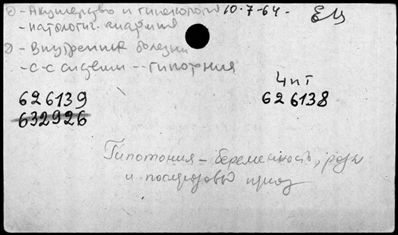 1) - Акушерство и гинекология 10-7-64.
- патологич. анатомия
2) - Внутренние болезни
- с-с системы -- гипотония
Чит
626139 626138
632926
Гипотония - беременность, роды
и послеродовый период